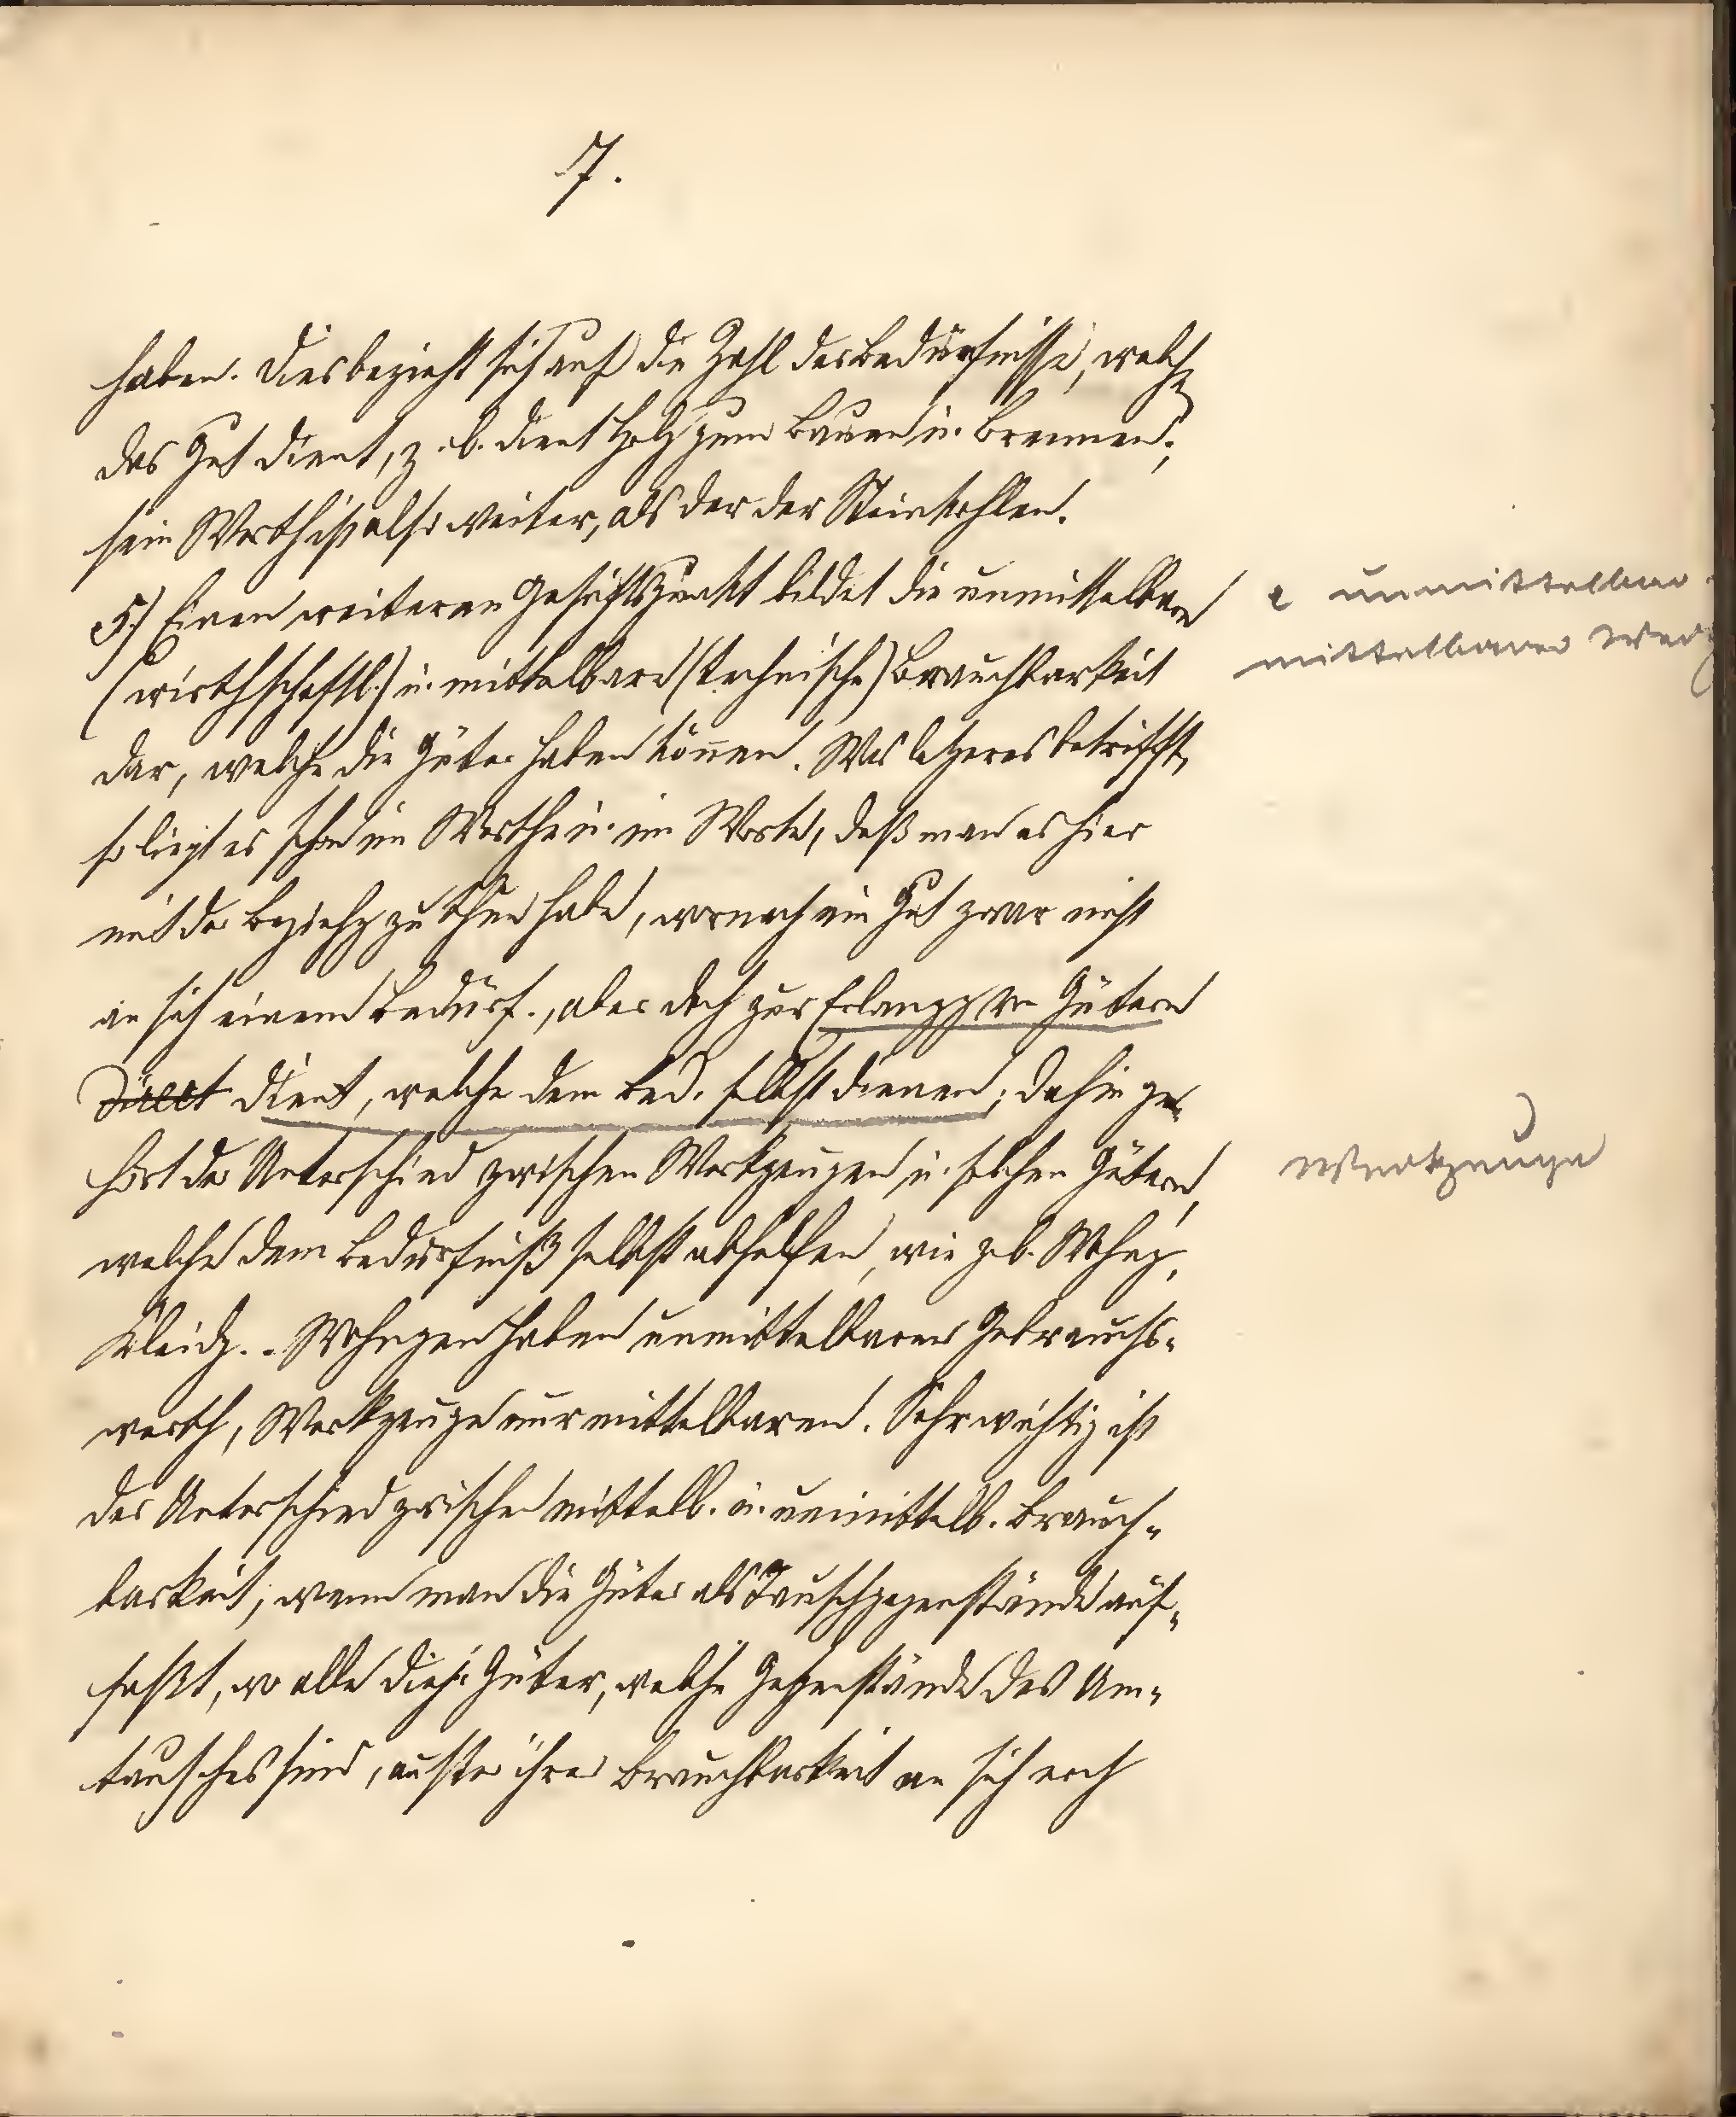 7.
haben. Dies bezieht sich auf die Zahl der Bedürfnisse, welche
das Gut dient, z. B. dient Holz zum Bauen u. Brennen;
sein Werth ist also weiter, als der der Steinkohlen.
5.) Einen weiteren Gesichtspunkt bildet die unmittelbare
(wirthschaftl.) u. mittelbare (technische) Brauchbarkeit
dar, welche die Güter haben können. Was letzteres betrifft,
so liegt es schon im Werthe u. im Worte, daß man es hier
mit der Beziehg zu thun habe, wornach ein Gut zwar nicht
an sich einem Bedürf., aber doch zur Erlangg von Gütern
direct dient, welche dem Bed. selbst dienen; dahin ge-
hört der Unterschied zwischen Werkzeugen u. solchen Gütern,
welche dem Bedürfniß selbst abhelfen, wie z. B. Wohng,
Kleidg. - Wohngen haben unmittelbaren Gebrauchs-
werth, Werkzeuge nur mittelbaren. Sehr wichtig ist
der Unterschied zwischen mittelb. u. unmittelb. Brauch-
barkeit, wenn man die Güter als Tauschgegenstände auf-
faßt, wo alle diese Güter, welche Gegenstände des Um-
tausches sind, außer ihrer Brauchbarkeit an sich noch
unmittelbar
mittelbarer
Werkzeuge